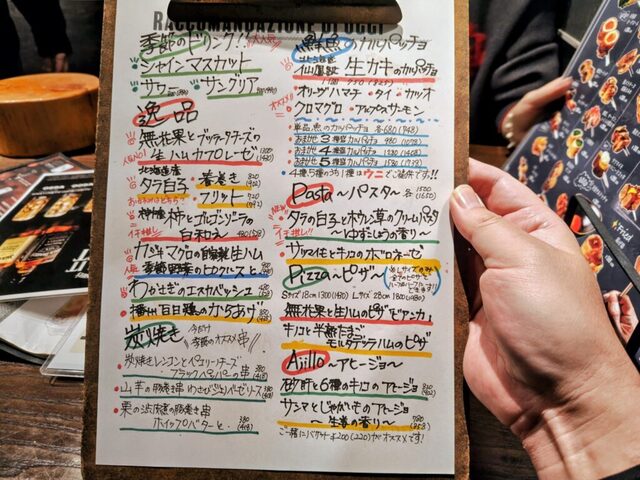 RACCOMANDAZIONE DI OGGI
季節のドリンク!!
シャインマスカット
サワー サングリア
逸品
無花果とブッラータチーズの
生ハムカプレーゼ
北海道産
タラ白子
春巻き
フリット
柿とゴルゴンゾーラの
白和え 480(528)
カジキマグロの自家製生ハム
季節野菜のピクルスと
わかさぎのエスカベッシュ
播州百日鶏のからあげ
炭焼き
今だけ
季節のオススメ串!!
炭焼きレンコンとペコリーノチーズ
ブラックペッパーの串 380(418)
山芋の豚巻き串 わさびジェノベーゼソース 380(418)
栗の渋皮煮の豚巻き串
ホイップバターと 380(418)
鮮魚のカルパッチョ
仙鳳趾 生カキのカルパッチョ
オリーブハマチ・タイ・カツオ
クロマグロ・アルプスサーモン
単品魚のカルパッチョ 各680(748)
おまかせ3種盛カルパッチョ 980(1078)
おまかせ4種盛カルパッチョ 1280(1408)
おまかせ5種盛カルパッチョ 1580(1738)
4種、5種盛りはウニもご提供です!!
Pasta ~パスタ~
タラの白子とホウレン草のクリームパスタ
~ゆずこしょうの香り~
サツマイモとキノコのボロネーゼ
Pizza ~ピザ~
Sサイズ18cm 1300(1430) Lサイズ28cm 1800(1980)
無花果と生ハムのピザビアンカ
キノコと半熟たまご
モルタデッラハムのピザ
Ajillo ~アヒージョ~
砂肝と6種のキノコのアヒージョ 820(902)
サンマとじゃがいものアヒージョ 780(858)
~生姜の香り~
ご一緒にバゲット¥200(220)がオススメです!